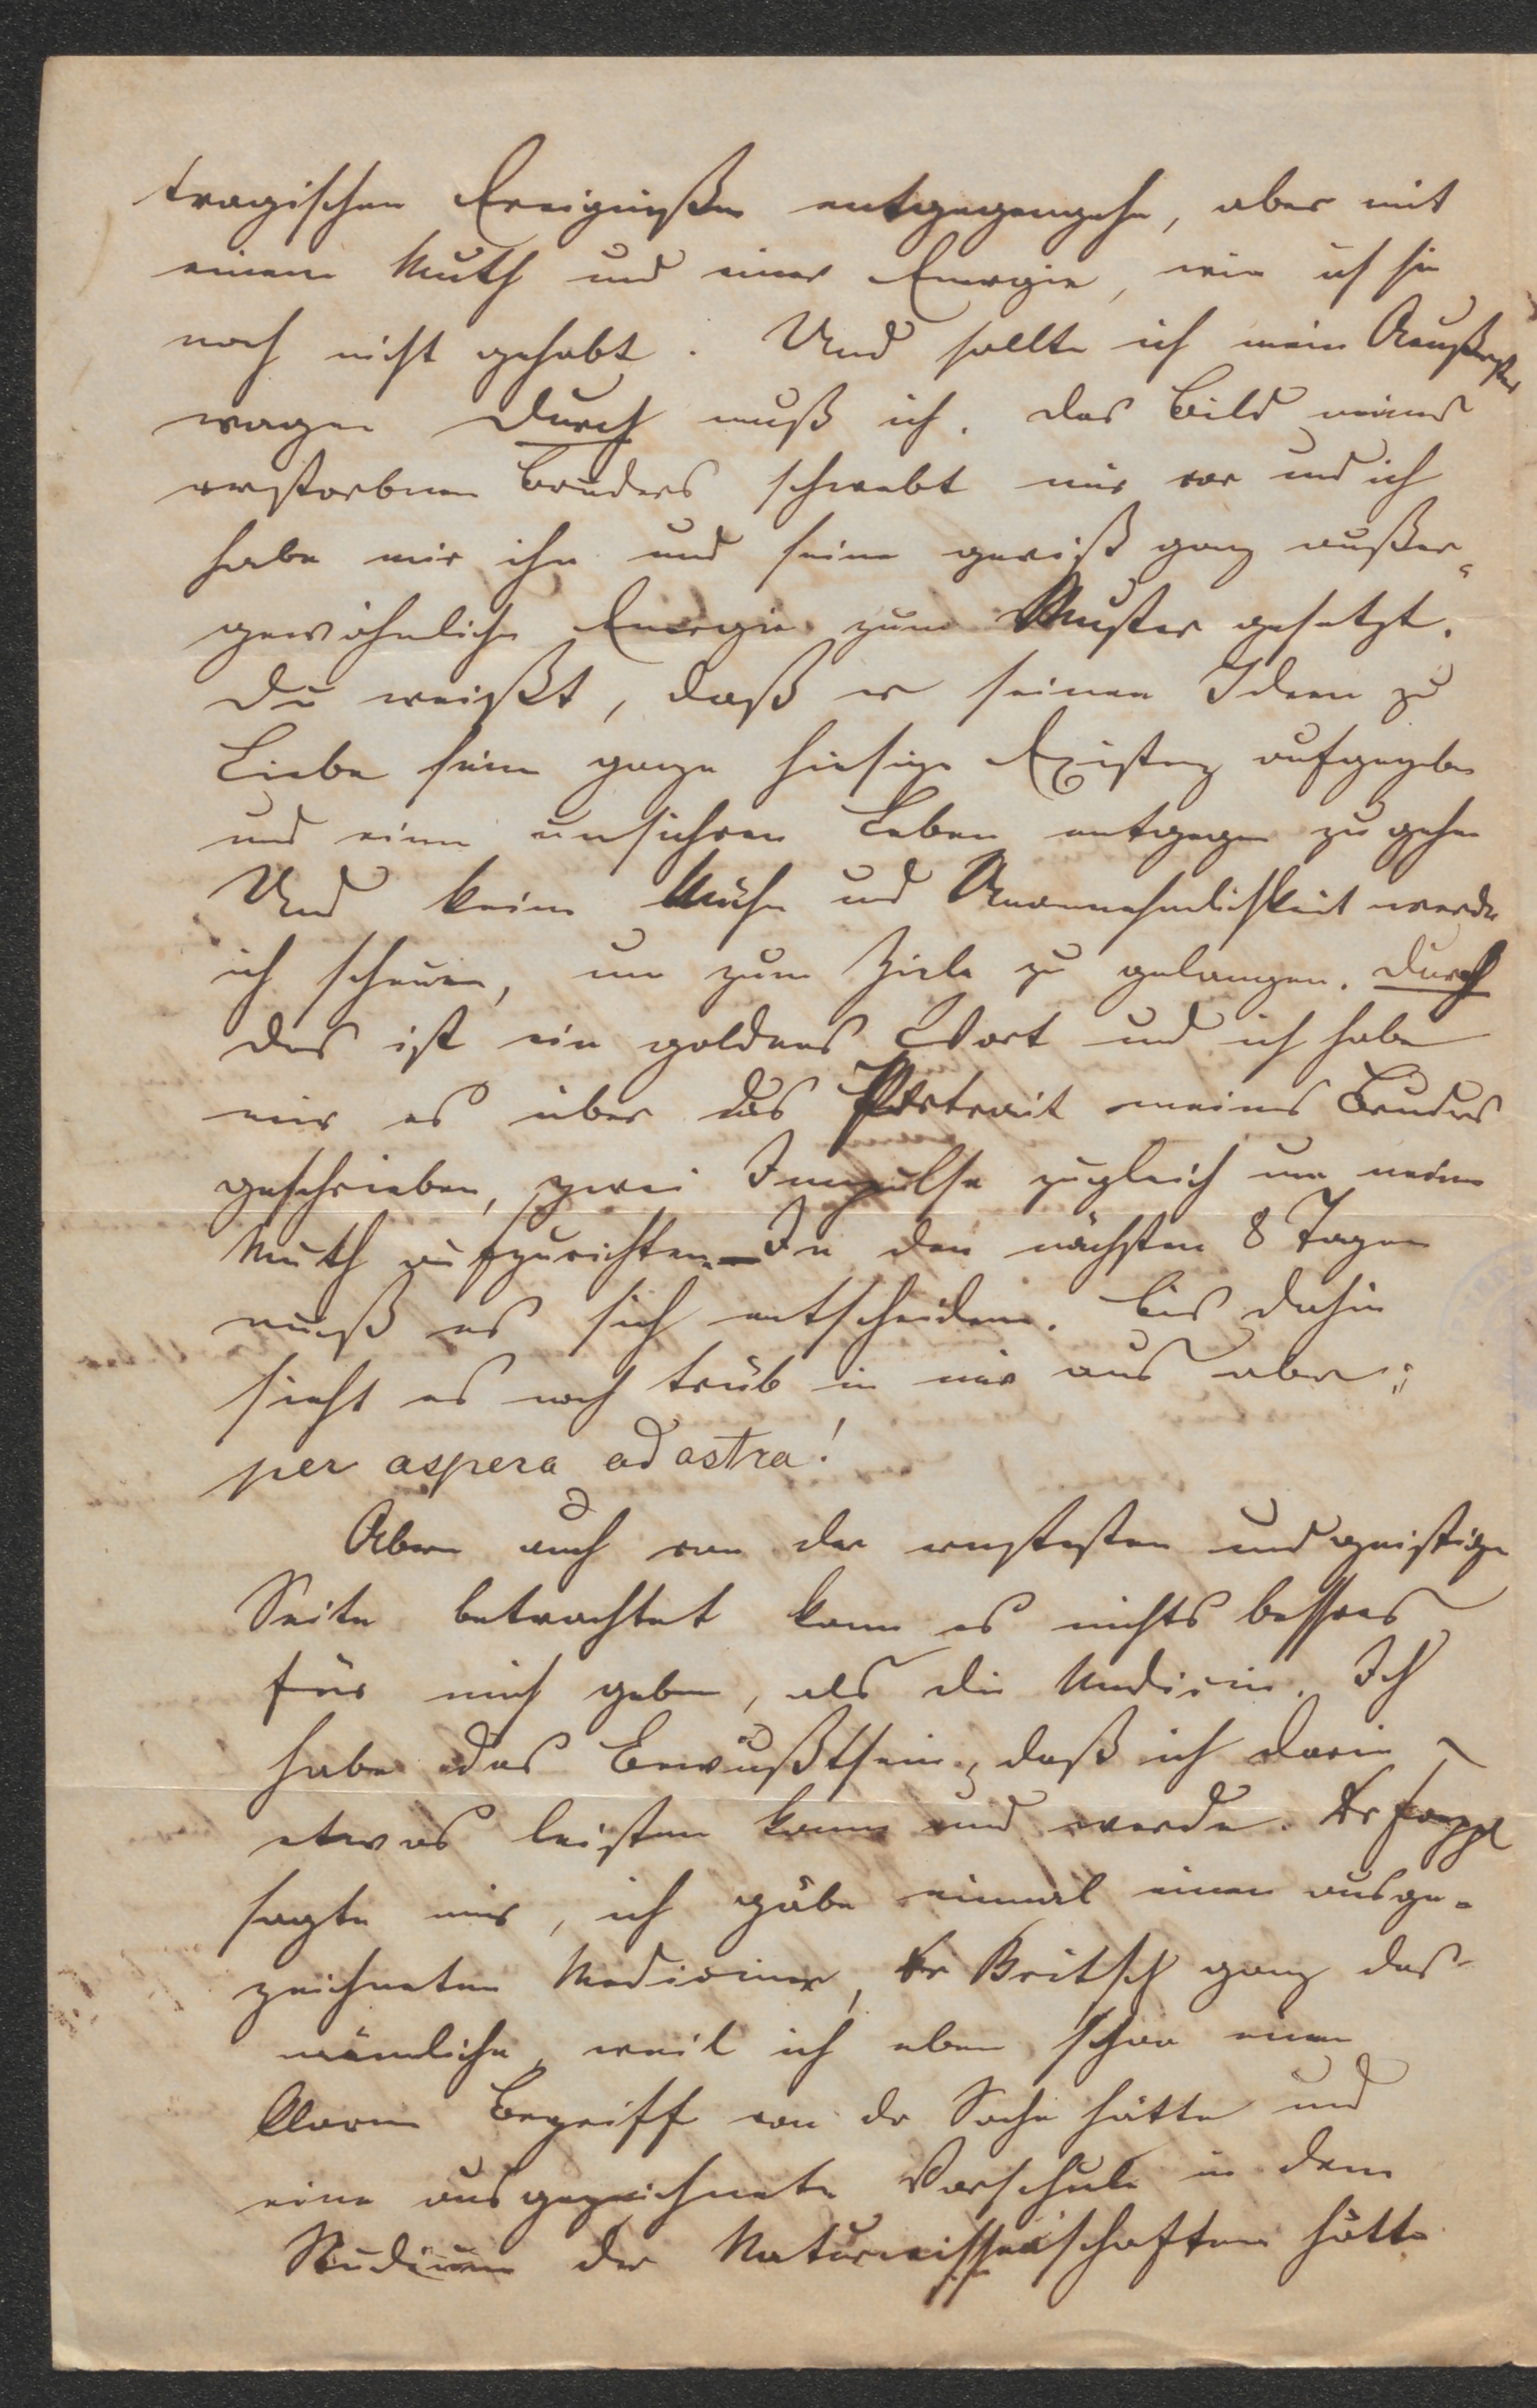 tragischen Ereignißen entgegengehe, aber mit
einem Muth und einer Energie, wie ich sie
noch nicht gehabt. Und sollte ich mein Aeußerstes
wagen durch muß ich. das Bild meines
verstorbnen Bruders schwebt mir vor und ich
habe mir ihn und seine gewiß ganz außer-
gewöhnliche Energie zum Muster gesetzt.
Du weißt, daß er seinen Ideen zu
Liebe seine ganze hiesige Existenz aufgegeben
und einem unsichren Leben entgegen zu gehen
Und keine Mühe und Unannehmlichkeit werde
ich scheuen, um zum Ziele zu gelangen. durch
das ist ein goldnes Wort und ich habe
mir es über das Portrait meines Bruders
geschrieben, zwei Impulse zugleich um meinen
Muth aufzurichten. – In den nächsten 8 Tagen
muß es sich entscheiden. bis dahin
sieht es noch trüb in mir aus aber:
per aspera ad astra!
Aber auch von der ernstesten und geistigen
Seite betrachtet kann es nichts beßres
für mich geben, als die Medicin. Ich
habe das Bewußtsein, daß ich darin
etwas leisten kann und werde. Dr
sagte mir, ich gäbe einmal einen ausge-
zeichneten Mediciner, Dr Britsch ganz das
nämliche, weil ich eben schon einen
klaren Begriff von der Sache hätte und
eine ausgezeichnete Vorschule in dem
Studium der Naturwissenschaften hätte